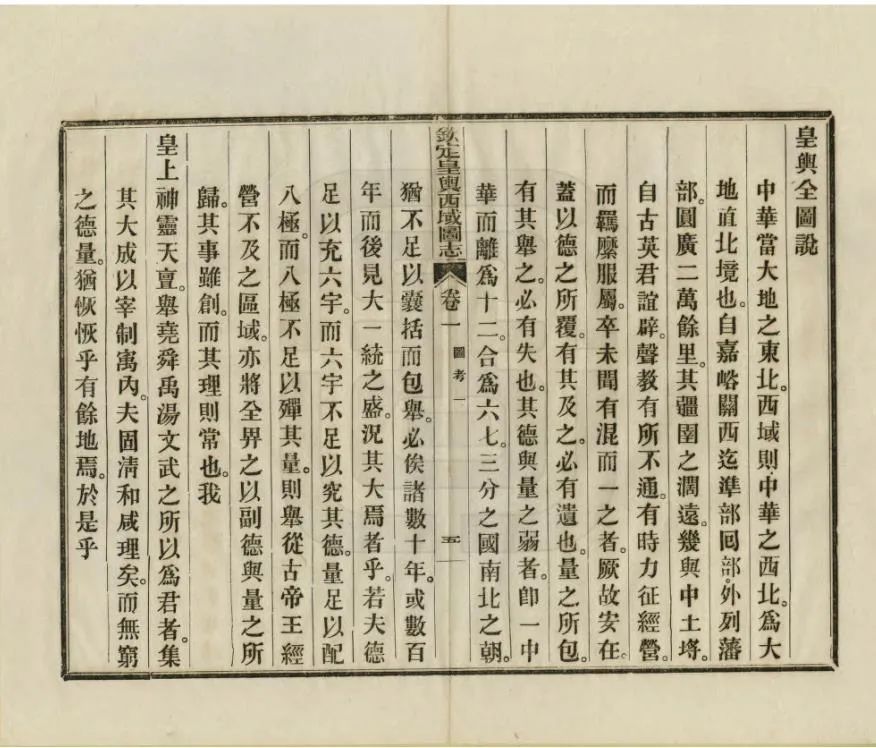 皇輿全圖說
中華當大地之東北。西域則中華之西北。爲大
地直北境也。自嘉峪關西迄準部回部。外列藩
部。圓廣二萬餘里。其疆圉之濶遠。幾與中土埒。
自古英君誼辟。聲教有所不通。有時力征經營。
而羈縻服屬。卒未聞有混而一之者。厥故安在。
蓋以德之所覆。有其及之。必有遺也。量之所包。
有其舉之。必有失也。其德與量之弱者。卽一中
華而離爲十二。合爲六七。三分之國南北之朝。
欽定皇輿西域圖志 卷一 圖考一 五
猶不足以囊括而包舉。必俟諸數十年。或數百
年而後見大一統之盛。況其大焉者乎。若夫德
足以充六宇。而六宇不足以究其德。量足以配
八極。而八極不足以殫其量。則舉從古帝王經
營不及之區域。亦將全畀之以副德與量之所
歸。其事雖創。而其理則常也。我
皇上神靈天亶。舉堯舜禹湯文武之所以爲君者。集
其大成以宰制寓內。夫固清和咸理矣。而無窮
之德量。猶恢恢乎有餘地焉。於是乎